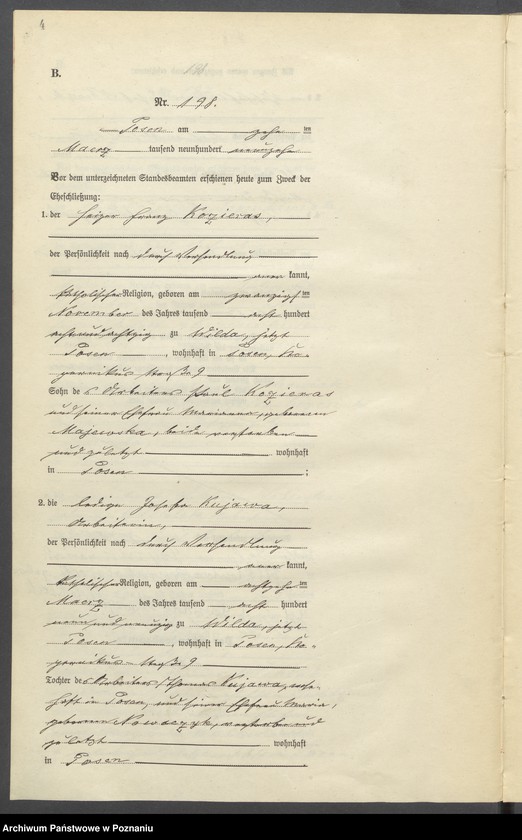 4
B.
Nr. 198.
Posen am zehn ten
Maerz tausend neunhundert neunzehn
Vor dem unterzeichneten Standesbeamten erschienen heute zum Zweck der
Eheschließung:
1. der Heizer Franz Kozieras,
der Persönlichkeit nach durch Verhandlung
aner kannt,
katholischer Religion, geboren am zwanzigsten
November des Jahres tausend acht hundert
achtundachtzig zu Wilda, jetzt
Posen, wohnhaft in Posen, Ko-
pernikus Straße 9
Sohn des Arbeiters Paul Kozieras
und seiner Ehefrau Marianna, geborenen
Majewska, beide verstorben
und zuletzt wohnhaft
in Posen ;
2. die ledige Josefa Kujawa,
Arbeiterin,
der Persönlichkeit nach durch Verhandlung
aner kannt,
katholischer Religion, geboren am achtzehn ten
Maerz des Jahres tausend acht hundert
neunundneunzig zu Wilda, jetzt
Posen, wohnhaft in Posen, Ko-
pernikus-Straße 9
Tochter des Arbeiters Thomas Kujawa, wohn-
haft in Posen, und seiner Ehefrau Maria,
geborenen Nowaczyk, verstorben und
zuletzt wohnhaft
in Posen
Archiwum Państwowe w Poznaniu